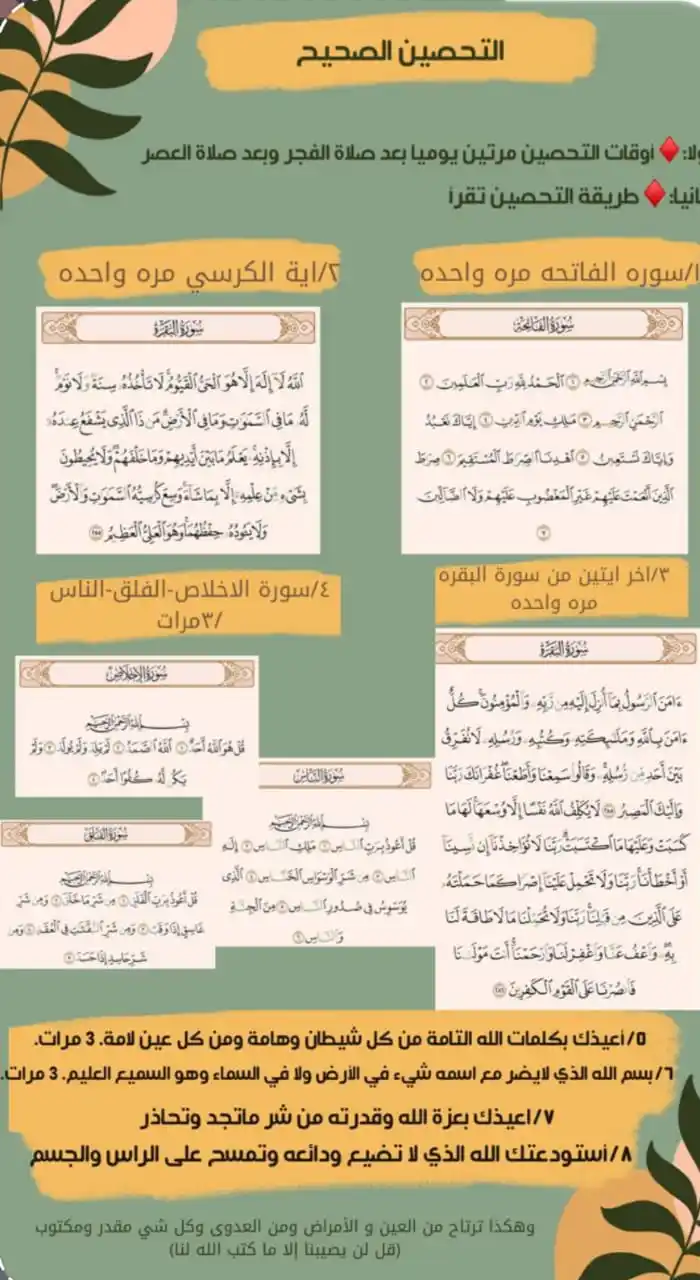 التحصين الصحيح
ولا:♦️ أوقات التحصين مرتين يوميا بعد صلاة الفجر وبعد صلاة العصر
انيا:♦️ طريقة التحصين تقرأ
١/سوره الفاتحه مره واحده
سُورَةُ الفَاتِحَة
بِسْمِ اللَّهِ الرَّحْمَٰنِ الرَّحِيمِ ١ الْحَمْدُ لِلَّهِ رَبِّ الْعَالَمِينَ ٢
الرَّحْمَٰنِ الرَّحِيمِ ٣ مَالِكِ يَوْمِ الدِّينِ ٤ إِيَّاكَ نَعْبُدُ
وَإِيَّاكَ نَسْتَعِينُ ٥ اهْدِنَا الصِّرَاطَ الْمُسْتَقِيمَ ٦ صِرَاطَ
الَّذِينَ أَنْعَمْتَ عَلَيْهِمْ غَيْرِ الْمَغْضُوبِ عَلَيْهِمْ وَلَا الضَّالِّينَ
٧
٢/اية الكرسي مره واحده
سُورَةُ البَقَرَة
اللَّهُ لَا إِلَٰهَ إِلَّا هُوَ الْحَيُّ الْقَيُّومُ لَا تَأْخُذُهُ سِنَةٌ وَلَا نَوْمٌ
لَّهُ مَا فِي السَّمَاوَاتِ وَمَا فِي الْأَرْضِ مَن ذَا الَّذِي يَشْفَعُ عِندَهُ
إِلَّا بِإِذْنِهِ يَعْلَمُ مَا بَيْنَ أَيْدِيهِمْ وَمَا خَلْفَهُمْ وَلَا يُحِيطُونَ
بِشَيْءٍ مِّنْ عِلْمِهِ إِلَّا بِمَا شَاءَ وَسِعَ كُرْسِيُّهُ السَّمَاوَاتِ وَالْأَرْضَ
وَلَا يَئُودُهُ حِفْظُهُمَا وَهُوَ الْعَلِيُّ الْعَظِيمُ ٢٥٥
٣/اخر ايتين من سورة البقره
مره واحده
سُورَةُ البَقَرَة
ءَامَنَ الرَّسُولُ بِمَا أُنزِلَ إِلَيْهِ مِن رَّبِّهِ وَالْمُؤْمِنُونَ كُلٌّ
ءَامَنَ بِاللَّهِ وَمَلَائِكَتِهِ وَكُتُبِهِ وَرُسُلِهِ لَا نُفَرِّقُ
بَيْنَ أَحَدٍ مِّن رُّسُلِهِ وَقَالُوا سَمِعْنَا وَأَطَعْنَا غُفْرَانَكَ رَبَّنَا
وَإِلَيْكَ الْمَصِيرُ ٢٨٥ لَا يُكَلِّفُ اللَّهُ نَفْسًا إِلَّا وُسْعَهَا لَهَا مَا
كَسَبَتْ وَعَلَيْهَا مَا اكْتَسَبَتْ رَبَّنَا لَا تُؤَاخِذْنَا إِن نَّسِينَا
أَوْ أَخْطَأْنَا رَبَّنَا وَلَا تَحْمِلْ عَلَيْنَا إِصْرًا كَمَا حَمَلْتَهُ
عَلَى الَّذِينَ مِن قَبْلِنَا رَبَّنَا وَلَا تُحَمِّلْنَا مَا لَا طَاقَةَ لَنَا
بِهِ وَاعْفُ عَنَّا وَاغْفِرْ لَنَا وَارْحَمْنَا أَنتَ مَوْلَانَا
فَانصُرْنَا عَلَى الْقَوْمِ الْكَافِرِينَ ٢٨٦
٤/سورة الاخلاص-الفلق-الناس
/٣مرات
سُورَةُ الإِخْلَاص
بِسْمِ اللَّهِ الرَّحْمَٰنِ الرَّحِيمِ
قُلْ هُوَ اللَّهُ أَحَدٌ ١ اللَّهُ الصَّمَدُ ٢ لَمْ يَلِدْ وَلَمْ يُولَدْ ٣ وَلَمْ
يَكُن لَّهُ كُفُوًا أَحَدٌ ٤
سُورَةُ النَّاس
بِسْمِ اللَّهِ الرَّحْمَٰنِ الرَّحِيمِ
قُلْ أَعُوذُ بِرَبِّ النَّاسِ ١ مَلِكِ النَّاسِ ٢ إِلَٰهِ
النَّاسِ ٣ مِن شَرِّ الْوَسْوَاسِ الْخَنَّاسِ ٤ الَّذِي
يُوَسْوِسُ فِي صُدُورِ النَّاسِ ٥ مِنَ الْجِنَّةِ
وَالنَّاسِ ٦
سُورَةُ الفَلَق
بِسْمِ اللَّهِ الرَّحْمَٰنِ الرَّحِيمِ
قُلْ أَعُوذُ بِرَبِّ الْفَلَقِ ١ مِن شَرِّ مَا خَلَقَ ٢ وَمِن شَرِّ
غَاسِقٍ إِذَا وَقَبَ ٣ وَمِن شَرِّ النَّفَّاثَاتِ فِي الْعُقَدِ ٤ وَمِن
شَرِّ حَاسِدٍ إِذَا حَسَدَ ٥
٥/أعيذك بكلمات الله التامة من كل شيطان وهامة ومن كل عين لامة. 3 مرات.
٦/بسم الله الذي لايضر مع اسمه شيء في الأرض ولا في السماء وهو السميع العليم. 3 مرات.
٧/اعيذك بعزة الله وقدرته من شر ماتجد وتحاذر
٨/أستودعتك الله الذي لا تضيع ودائعه وتمسح على الراس والجسم
وهكذا ترتاح من العين و الأمراض ومن العدوى وكل شي مقدر ومكتوب
(قل لن يصيبنا إلا ما كتب الله لنا)